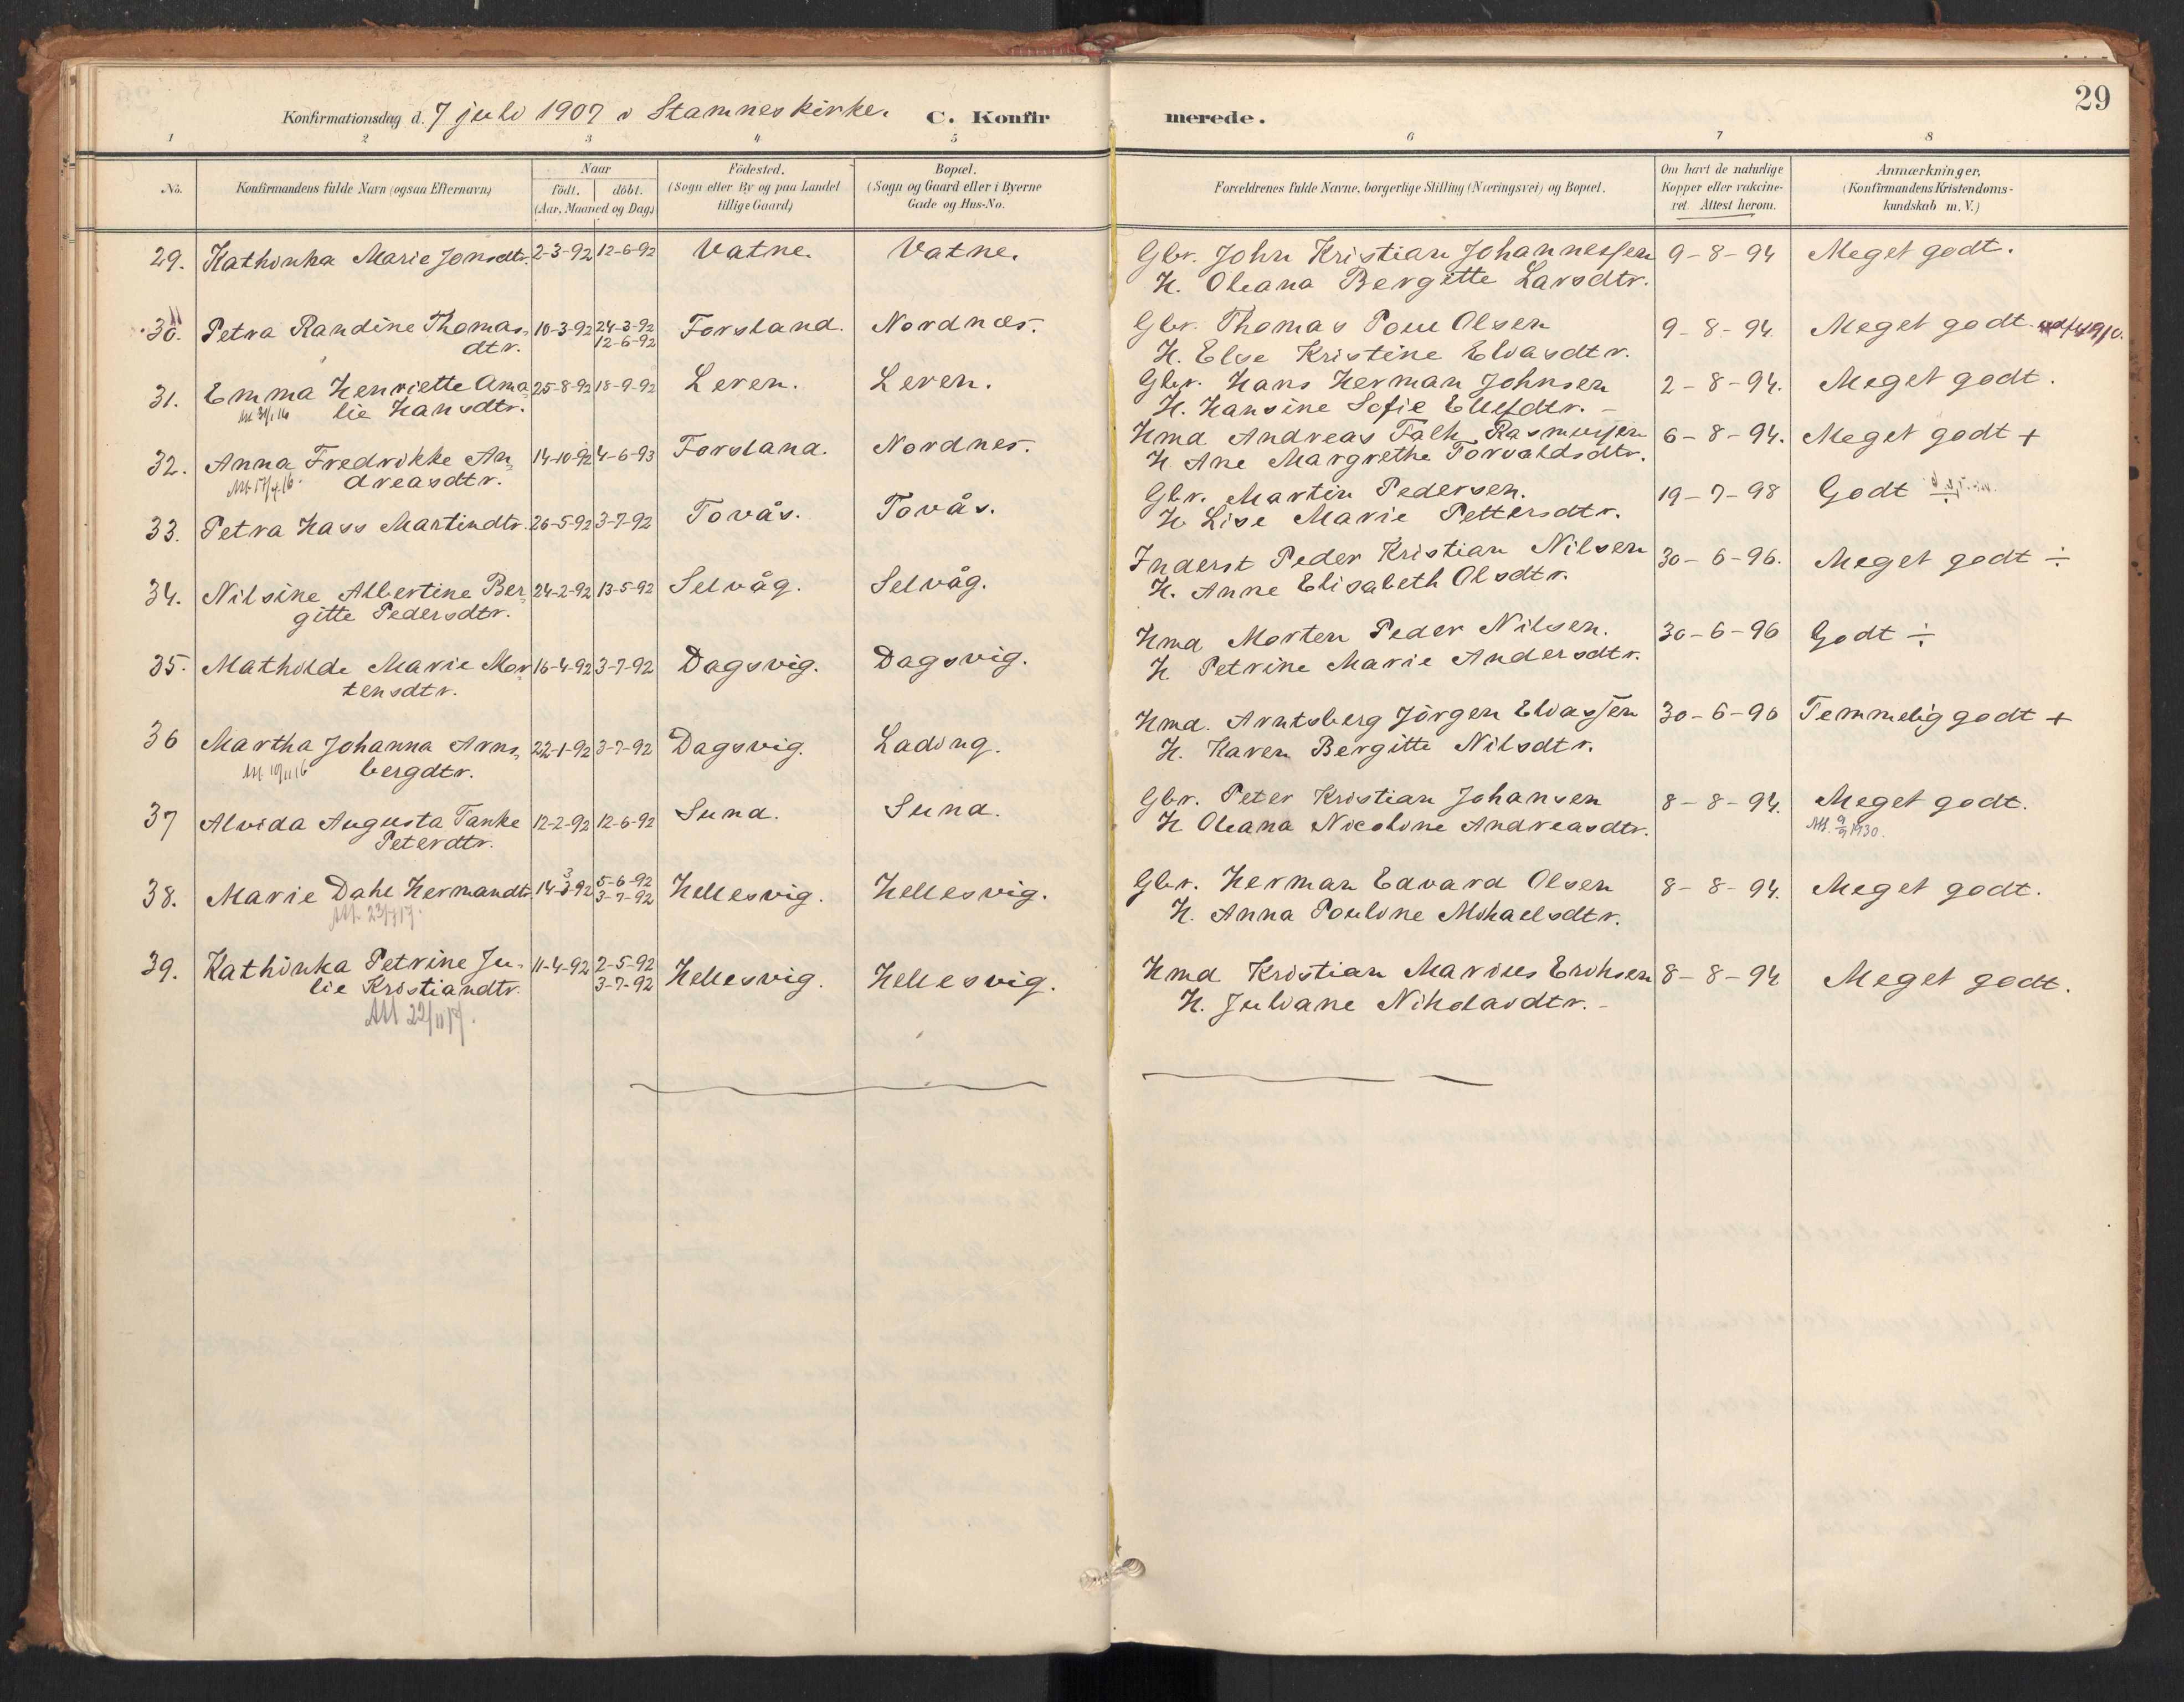 29
Konfirmationsdag d. 7 juli 1907 i Stamnes kirke. C. Konfirmerede.
1 2 3 4 5 6 7 8
No. Konfirmandens fulde Navn (ogsaa Efternavn) Naar födt. döbt. (Aar, Maaned og Dag) Födested. (Sogn eller By og paa Landet tillige Gaard) Bopæl. (Sogn og Gaard eller i Byerne Gade og Hus-No. Forældrenes fulde Navne, borgerlige Stilling (Næringsvei) og Bopæl. Om havt de naturlige Kopper eller vakcineret. Attest herom. Anmærkninger, (Konfirmandens Kristendomskundskab m. V.)
29. Kathinka Marie Jonsdtr. 2-3-92 12-6-92 Vatne. Vatne. Gbr. John Kristian Johannessen 9-8-94 Meget godt.
H. Oleana Bergitte Larsdtr.
30. Petra Randine Thomas- 10-3-92 24-3-92 Forsland. Nordnæs. Gbr. Thomas Poul Olsen 9-8-94. Meget godt.
dtr. 12-6-92 H. Else Kristine Eliasdtr.
31. Emma Henriette Ama- 25-8-92 18-9-92 Leren. Leren. Gbr. Hans Herman Johnsen 2-8-94. Meget godt.
lie Hansdtr. H. Hansine Sofie Ellefdtr. -
32. Anna Fredrikke An- 14-10-92 4-6-93 Forsland. Nordnes. Hmd Andreas Falk Rasmussen 6-8-94. Meget godt +
dreasdtr. H Ane Margrethe Torvaldsdtr.
33. Petra Hass Martindtr. 26-5-92 3-7-92 Tovås. Tovås. Gbr. Martin Pedersen. 19-7-98 Godt
H Lise Marie Pettersdtr.
34. Nilsine Albertine Ber- 24-2-92 13-5-92 Selvåg. Selvåg. Inderst Peder Kristian Nilsen 30-6-96. Meget godt ÷
gitte Pedersdtr. H. Anne Elisabeth Olsdtr.
35. Mathilde Marie Mor- 16-4-92 3-7-92 Dagsvig. Dagsvig. Hmd Morten Peder Nilsen. 30-6-96 Godt ÷
tensdtr. H Petrine Marie Andersdtr.
36 Martha Johanna Arns- 22-1-92 3-7-92 Dagsvig. Lading. Hmd. Arntsberg Jörgen Eliassen 30-6-96 Temmelig godt +
bergdtr. H. Karen Bergitte Nilsdtr.
37 Alvida Augusta Tanke 12-2-92 12-6-92 Sund. Sund. Gbr. Peter Kristian Johansen 8-8-94. Meget godt.
Peterdtr. H Oleana Nicoline Andreasdtr. Att. 9/9 1930.
38. Marie Dahl Hermandtr. 14-3-92 5-6-92 Hellesvig. Hellesvig. Gbr. Herman Edvard Olsen 8-8-94. Meget godt.
3-7-92 H. Anna Pouline Mikaelsdtr.
39. Kathinka Petrine Ju- 11-4-92 2-5-92 Hellesvig. Hellesvig. Hmd Kristian Marius Eriksen 8-8-94 Meget godt.
lie Kristiandtr. 3-7-92 H. Juliane Nikolaidtr. -
Att 22/11 17.